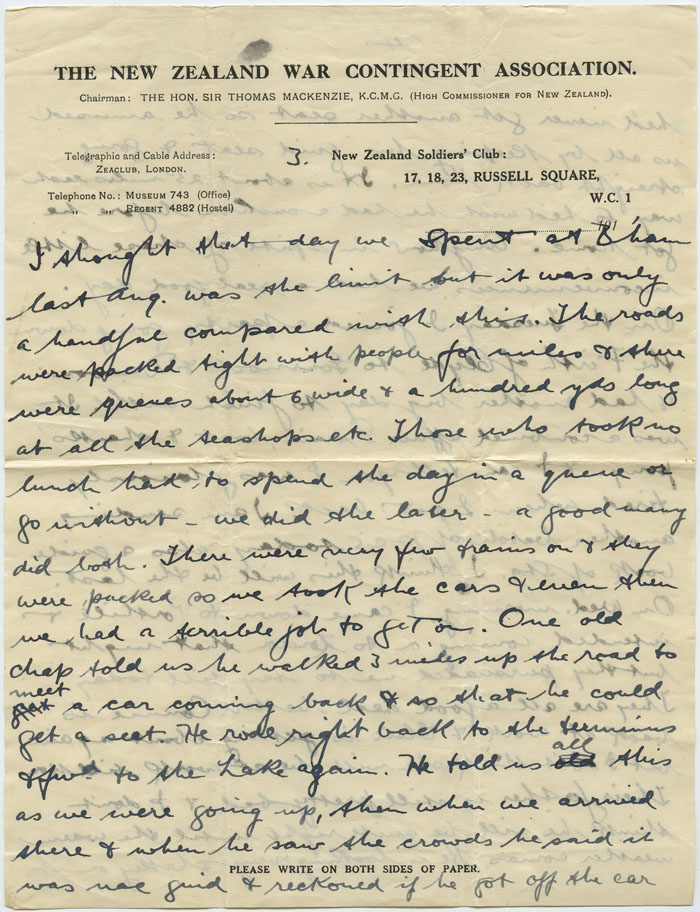 THE NEW ZEALAND WAR CONTINGENT ASSOCIATION.
Chairman: THE HON. SIR THOMAS MACKENZIE, K.C.M.G. (HIGH COMMISSIONER FOR NEW ZEALAND).
Telegraphic and Cable Address:
ZEACLUB, LONDON.
Telephone No.: MUSEUM 743 (Office)
" " REGENT 4882 (Hostel)
3.
New Zealand Soldiers' Club:
17, 18, 23, RUSSELL SQUARE,
W.C. 1
191
I thought that day we spent at B'ham
last Aug. was the limit but it was only
a handful compared with this. The roads
were packed tight with people for miles & there
were queues about 6 wide & a hundred yds long
at all the teashops etc. Those who took no
lunch had to spend the day in a queue or
go without - we did the later - a good many
did both. There were very few trains on & they
were packed so we took the cars & even then
we had a terrible job to get on. One old
chap told us he walked 3 miles up the road to
meet a car coming back & so that he could
get a seat. He rode right back to the terminus
& fwd to the Lake again. He told us all this
as we were going up, then when we arrived
there & when he saw the crowds he said it
was nae guid & reckoned if he got off the car
PLEASE WRITE ON BOTH SIDES OF PAPER.